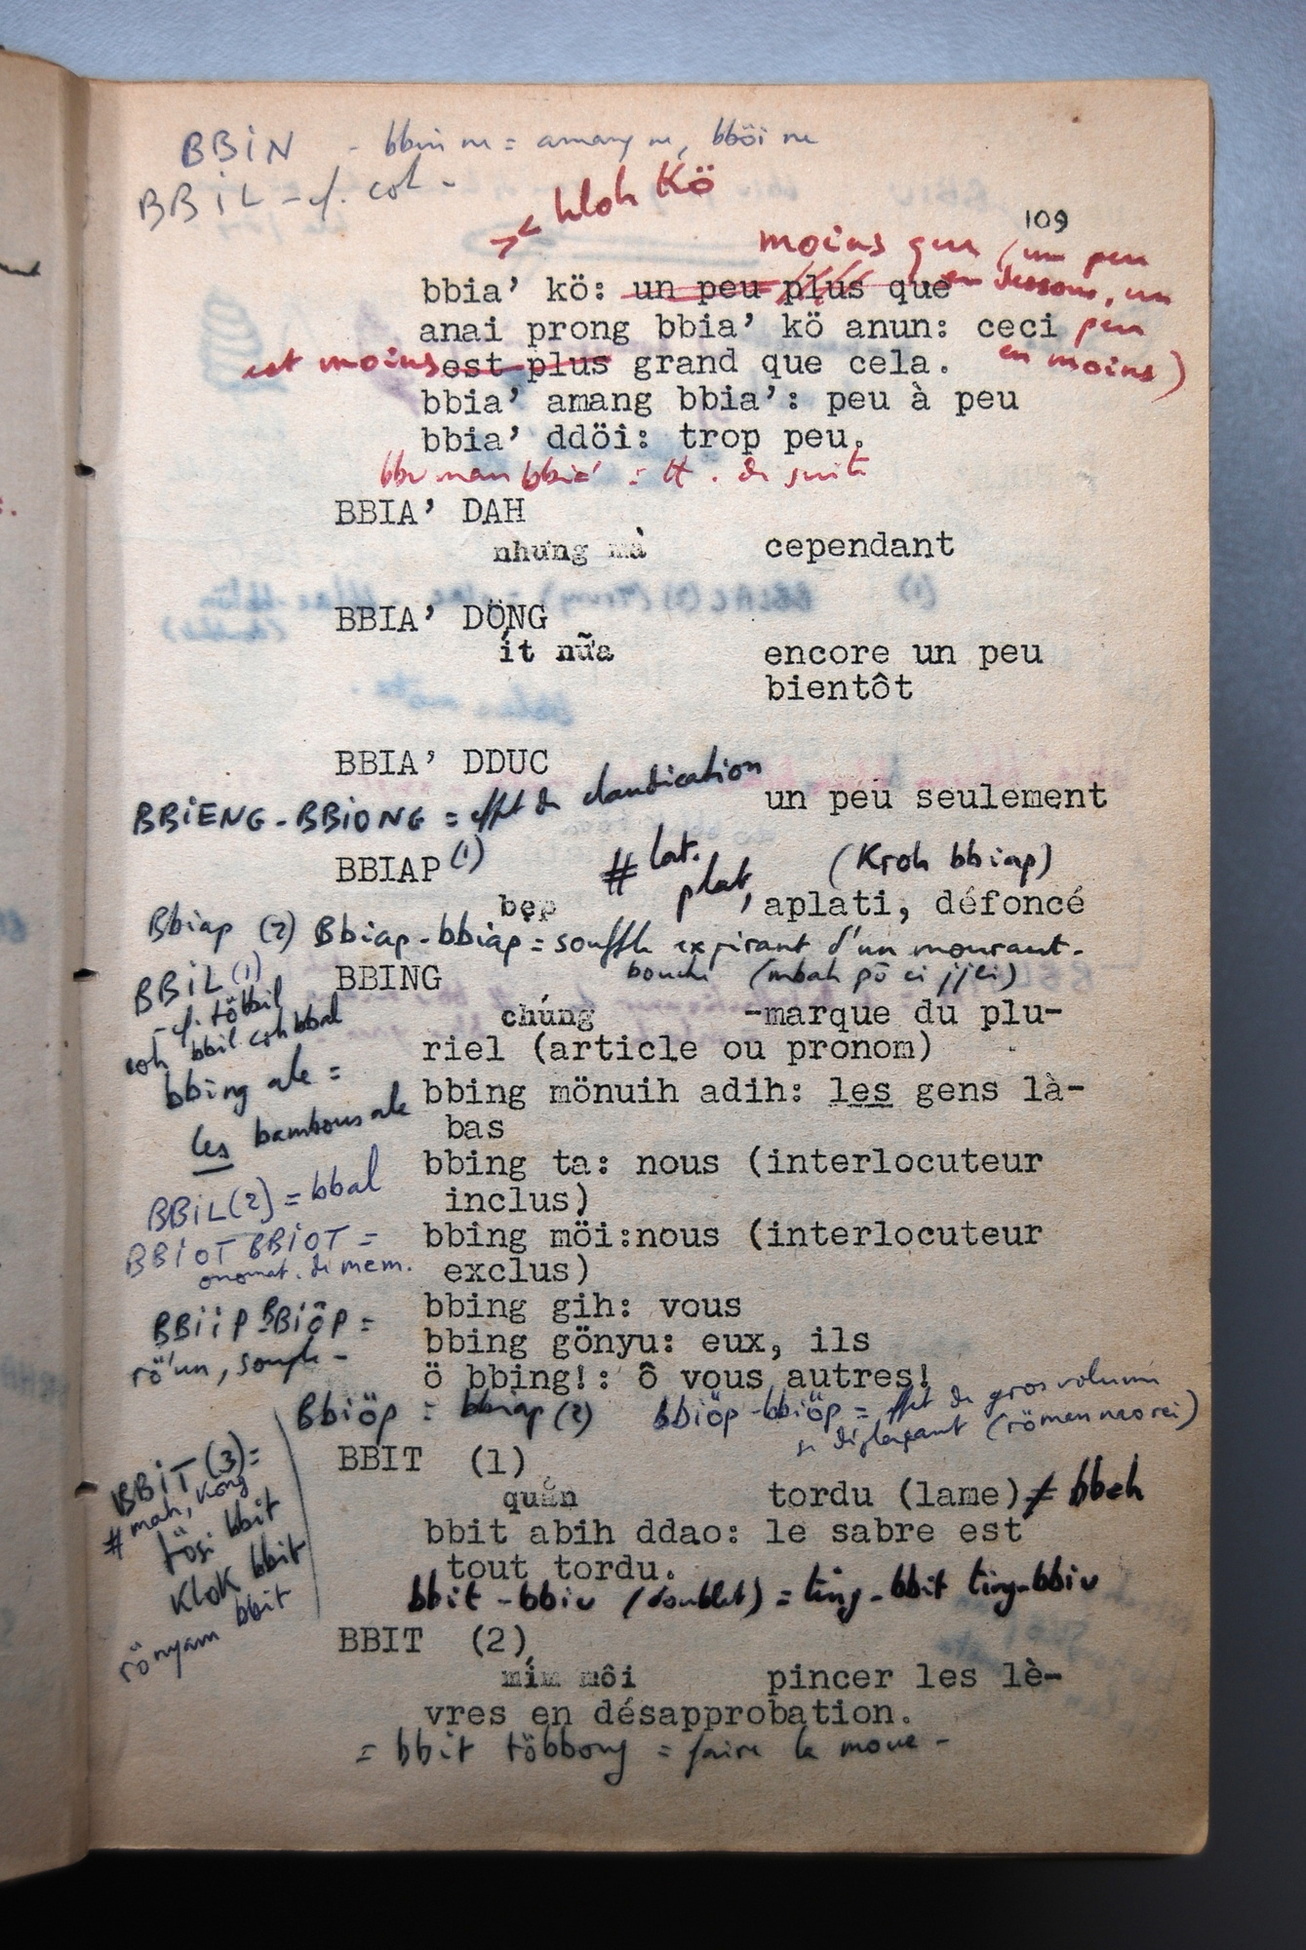 BBiN - bbin ne = amang ne, bböi ne
BBiL = cf. coh -
>< hloh Kö
109
moins que (un peu
bbia’ kö: un peu plus que en dessous, un
anai prong bbia’ kö anun: ceci peu
est moins est plus grand que cela. en moins)
bbia’ amang bbia’: peu à peu
bbia’ ddöi: trop peu.
bbia' = tt. de suite
BBIA’ DAH
nhưng mà cependant
BBIA’ DÖNG
ít nữa encore un peu
bientôt
BBIA’ DDUC
BBiENG-BBiONG = effet de claudication
un peu seulement
BBIAP (1) # lat. (Kroh bbiap)
bẹp plat, aplati, défoncé
Bbiap (2) Bbiap-bbiap = souffle expirant d'un mourant.
BBiL (1)
BBING bouche (mbah pö ei jjei)
- cf. többil
chúng -marque du plu-
coh bbil coh bbal
riel (article ou pronom)
bbing ale =
les bambous ale
bbing mönuih adih: les gens là-
bas
bbing ta: nous (interlocuteur
inclus)
BBiL (2) = bbal
BBiOT BBiOT =
onomat. de mem.
bbing möi:nous (interlocuteur
exclus)
bbing gih: vous
BBiîP-BBiôP =
rö'un, souple -
bbing gönyu: eux, ils
ö bbing!: ô vous autres!
Bbiöp = bbiap (2) bbiöp-bbiöp = effet de gros volume
se déplaçant
BBIT (1)
BBiT (3) =
# mah, kong
tösi bbit
Klok bbit
rönyam bbit
quăn tordu (lame) ≠ bbeh
bbit abih ddao: le sabre est
tout tordu.
bbit-bbiu (doublet) = ting-bbit ting-bbiu
BBIT (2)
mím môi pincer les lè-
vres en désapprobation.
= bbit többong = faire la moue -